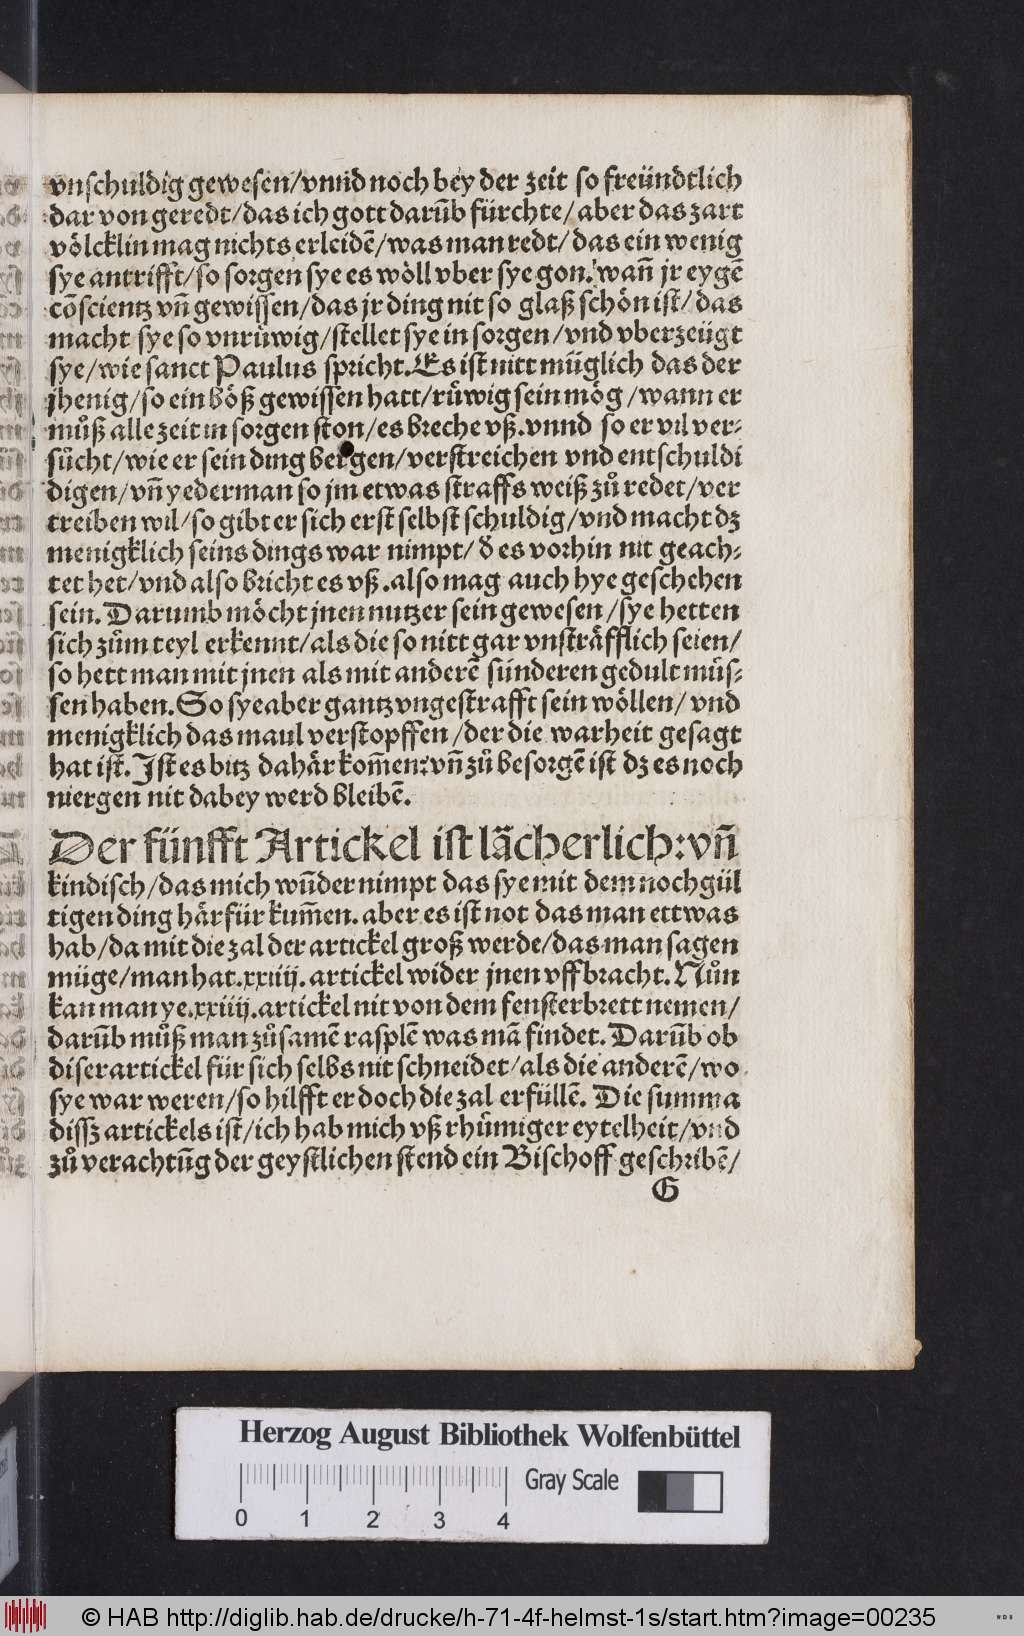 vnschuldig gewesen/vnnd noch bey der zeit so freündtlich
dar von geredt/das ich gott darūb fürchte/aber das zart
völcklin mag nichts erleidē/was man redt/das ein wenig
sye antrifft/so sorgen sye es wöll vber sye gon. wañ jr eygē
cōscientz vñ gewissen/das jr ding nit so glaß schön ist/das
macht sye so vnrüwig/stellet sye in sorgen/vnd vberzeügt
sye/wie sanct Paulus spricht. Es ist nitt müglich das der
jhenig/so ein böß gewissen hatt/rüwig sein mög/wann er
můß alle zeit in sorgen ston/es breche vß. vnnd so er vil ver⸗
sücht/wie er sein ding bergen/verstreichen vnd entschuldi
digen/vñ yederman so jm etwas straffs weiß zů redet/ver
treiben wil/so gibt er sich erst selbst schuldig/vnd macht dz
menigklich seins dings war nimpt/d̄ es vorhin nit geach⸗
tet het/vnd also bricht es vß. also mag auch hye geschehen
sein. Darumb möcht jnen nutzer sein gewesen/sye hetten
sich zům teyl erkennt/als die so nitt gar vnsträfflich seien/
so hett man mit jnen als mit anderē sünderen gedult müs⸗
sen haben. So sye aber gantz vngestrafft sein wöllen/vnd
menigklich das maul verstopffen/der die warheit gesagt
hat ist. Ist es bitz dahär kom̄en: vñ zů besorgē ist dz es noch
niergen nit dabey werd bleibē.
Der fünfft Artickel ist lächerlich: vñ
kindisch/das mich wūder nimpt das sye mit dem nochgül
tigen ding härfür kum̄en. aber es ist not das man ettwas
hab/da mit die zal der artickel groß werde/das man sagen
müge/man hat .xxiiij. artickel wider jnen vffbracht. Nůn
kan man ye .xxiiij. artickel nit von dem fensterbrett nemen/
darūb můß man zůsamē rasplē was mā findet. Darūb ob
diser artickel für sich selbs nit schneidet/als die anderē/wo
sye war weren/so hilfft er doch die zal erfüllē. Die summa
dissz artickels ist/ich hab mich vß rhümiger eytelheit/vnd
zů verachtūg der geystlichen stend ein Bischoff geschribē/
G
Herzog August Bibliothek Wolfenbüttel
Gray Scale
0 1 2 3 4
© HAB http://diglib.hab.de/drucke/h-71-4f-helmst-1s/start.htm?image=00235